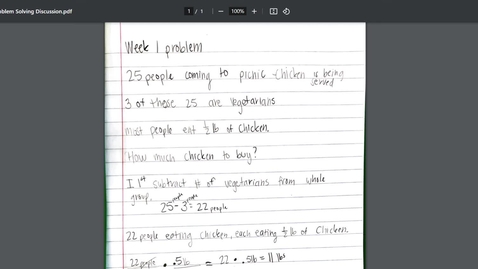 oblem Solving Discussion.pdf
1 / 1
100%
Week 1 problem
25 people coming to picnic - chicken is being served
3 of these 25 are vegetarians
most people eat ½ lb of chicken.
How much chicken to buy?
I 1st subtract # of vegetarians from whole
group.
25 - 3 = 22 people
22 people eating chicken, each eating ½ lb of chicken.
22 people • .5 lb = 22 • .5 lb = 11 lbs